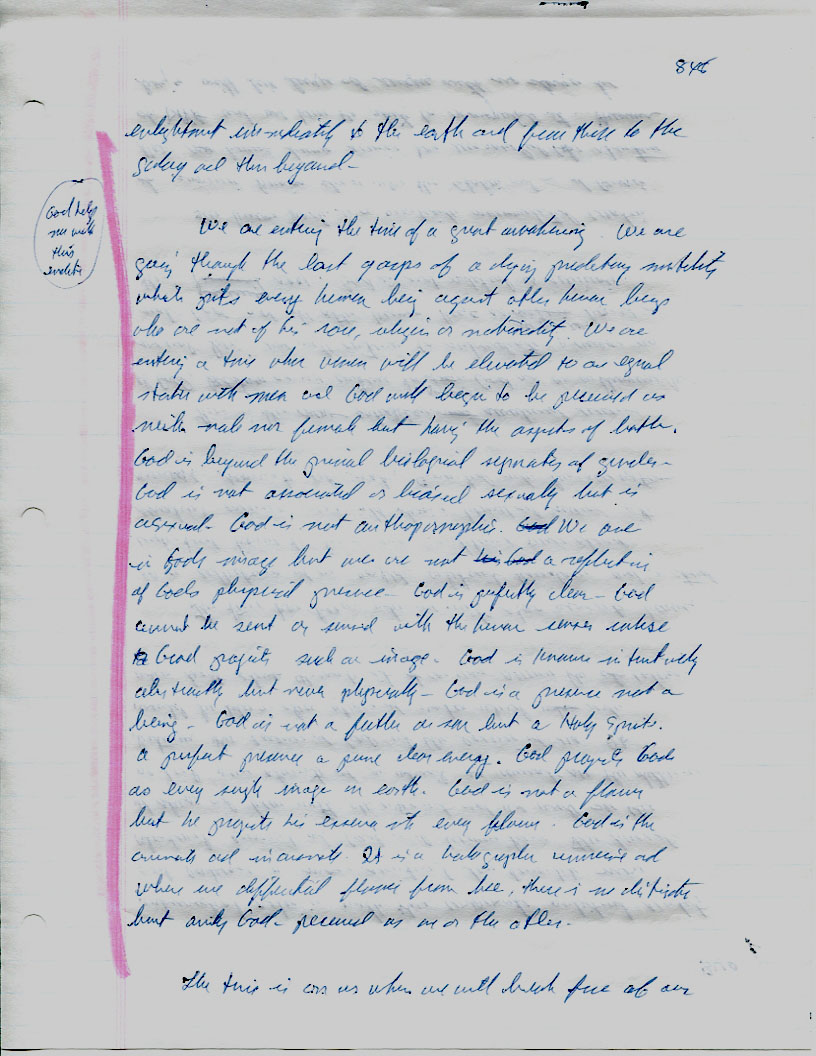 846
enlightment immediately to the earth and from there to the
galaxy and then beyond-
God help
me with
this
We are entering the time of a great awakening. We are
going through the last gasps of a dying predatory mentality
which puts every human being against other human beings
who are not of his race, religion or nationality. We are
entering a time when women will be elevated to an equal
status with men and God will begin to be perceived as
neither male nor female but having the aspects of both.
God is beyond the primal biological separates of gender-
God is not associated or biased sexually but is
asexual- God is not anthropomorphic. God We are
in Gods image but we are not a reflection
of Gods physical presence- God is perfectly clear- God
cannot be sent or sensed with the human senses unless
God projects such an image. God is known intuitively
abstractly but never physically- God is a presence not a
being- God is not a father or son but a Holy Spirit.
a perfect presence a pure clear energy. God projects Gods
as every single image on earth. God is not a flower
but he projects his essence into every flower. God is the
animate and inanimate. It is a holographic universe and
where we differential flower from bee, there is no distinction
but only God- perceived as one or the other-
The time is when we will break free of our